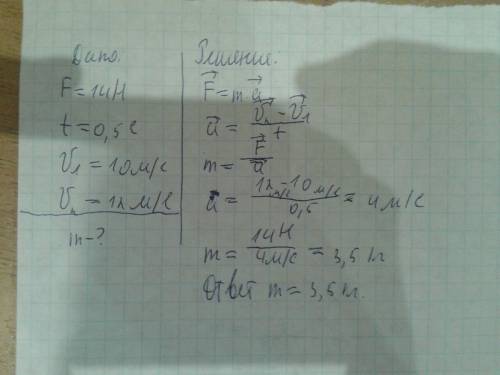 Дано:
F=14Н
t=0,5с
V₁=10м/с
V₂=12м/с
m-?
Решение:
F⃗=m·a⃗
a⃗=(V⃗₂-V⃗₁)/t
m=F⃗/a⃗
a=(12м/с-10м/с)/0,5=4м/с
m=14Н/4м/с=3,5кг
Ответ m=3,5кг.